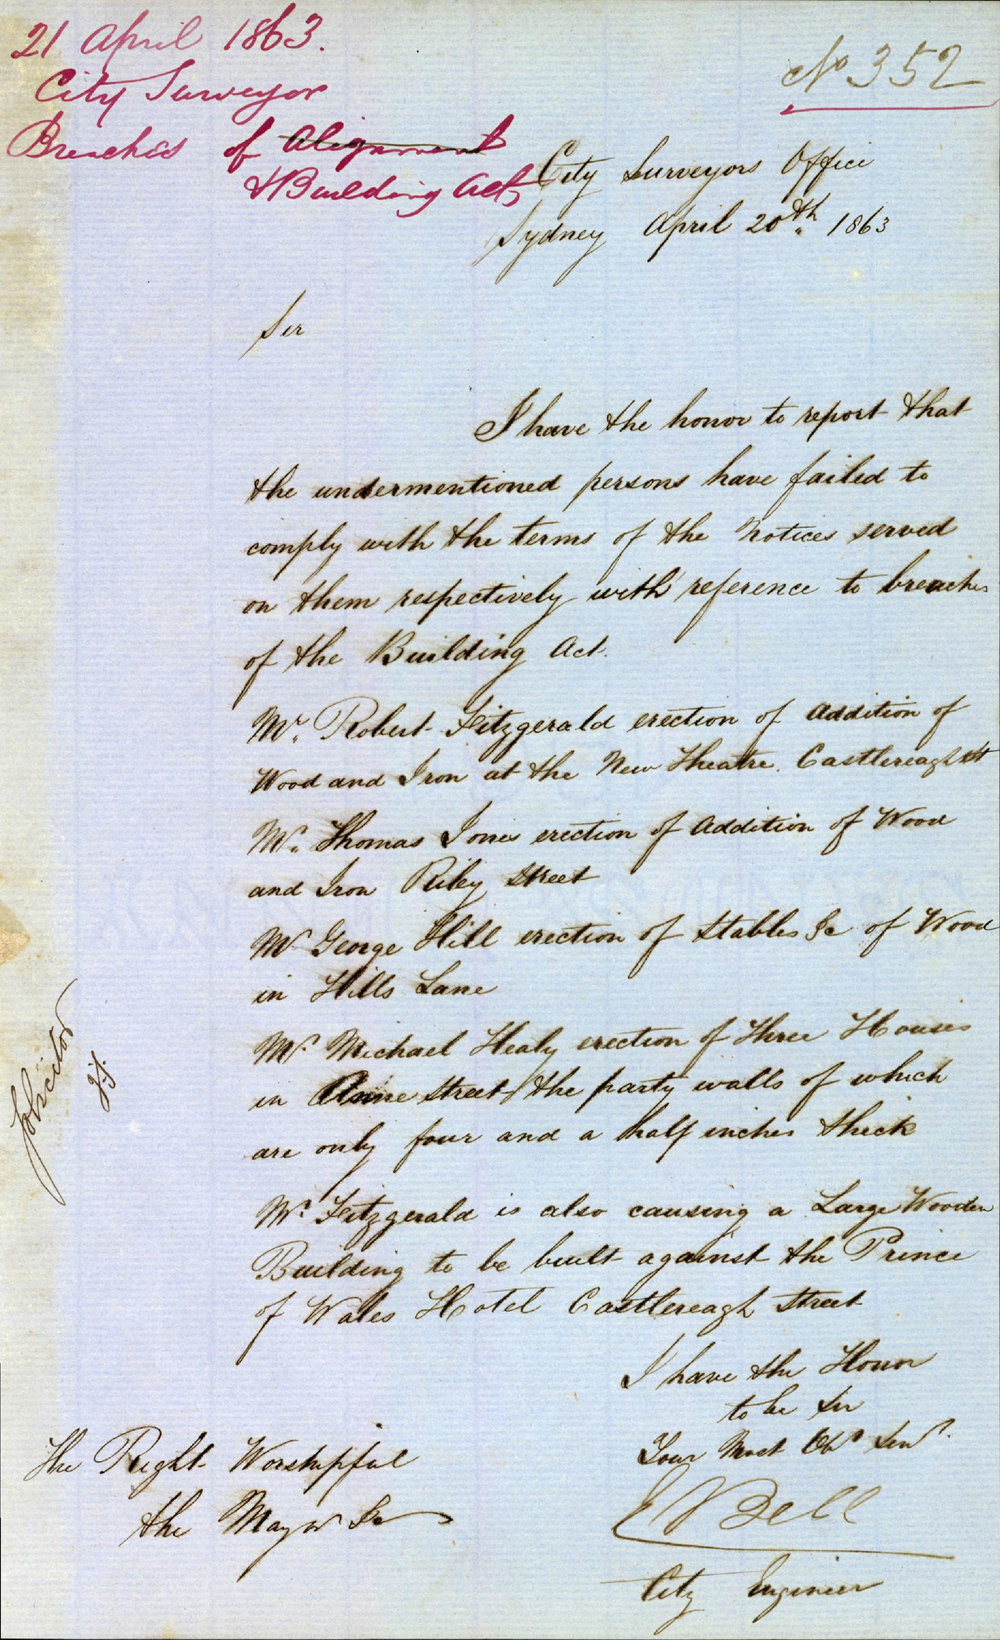 21 April 1863.
City Surveyor
Breaches of Alignment
& Building Acts
No 352
City Surveyors Office
Sydney April 20th 1863
Sir
I have the honor to report that
the undermentioned persons have failed to
comply with the terms of the Notices served
on them respectively with reference to breaches
of the Building Act.
Mr. Robert Fitzgerald erection of Addition of
Wood and Iron at the New Theatre. Castlereagh St
Mr. Thomas Jones erection of Addition of Wood
and Iron Riley Street
Mr George Hill erection of Stables &c of Wood
in Hills Lane
Mr. Michael Healy erection of Three Houses
in Anne Street the party walls of which
are only four and a half inches thick
Mr. Fitzgerald is also causing a Large Wooden
Building to be built against the Prince
of Wales Hotel Castlereagh Street
I have the Honor
to be Sir
Your Most Obt Servt.
E Bell
City Engineer
The Right Worshipful
the Mayor &c
Solicitor